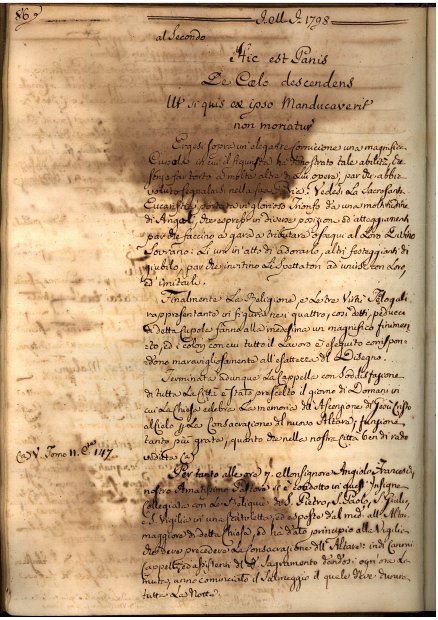 86
1798
al Secondo
Hic est Panis
De Cœlo descendens
Ut si quis ex ipso Manducaverit
non moriatur
Ergesi sopra un elegante cornicione una magnifica
Cupola in cui il Figurista ha dimostrato tale abilità, che
senza far torto a molte altre di Lui opere, par che abbia
voluto segnalarsi nella Vedesi La Sacrosanta
Eucaristia portata in glorioso Trionfo da una moltitudine
di Angoli, che espressi in diverse posizioni, ed atteggiamenti
par che faccino a gara a tributare ossequi al Loro Divino
Sovrano: Li uni in atto di adorarlo, altri festeggianti di
giubilo, par che invitino Li Spettatori ad unirsi con Loro
ed imitarli.
Finalmente La Religione, e Le tre Virtù Teologali
rappresentante in figura nei quattro, così detti, peducci
di detta Cupola fanno alla medesima un magnifico finimen-
to, ed i colori con cui tutto il Lavoro è eseguito corrispon-
dono maravigliosamente all'esattezza del Disegno.
Terminata adunque La Cappella con Soddisfazione
di tutta La Città è stato prescelto il giorno di Domani in
cui La Chiesa celebra La memoria dell'Ascenzione di Gesù Cristo
al Cielo La Consacrazione del nuovo Altare; funzione
tanto più grata, quanto che nella nostra Città ben di rado
veduta (a)
(a) V. Tomo 11. 147
Per tanto alle ore 7. Monsignore Angiolo Franceschi
nostro Amatissimo Pastore si è condotto in quest' Insigne
Collegiata con Le Reliquie de' S. Pietro, S. Paolo,
S. Vigilio in una scatoletta, ed esposte dal med.º all' Altar
maggiore di detta Chiesa, ed ha dato principio alla Vigilia
che deve precedere La Consacrazione dell' Altare: indi i Canonici
Cappellani assistenti del S. Sagramento
hanno cominciato il Salmeggio il quale deve durare
tutta La Notte.